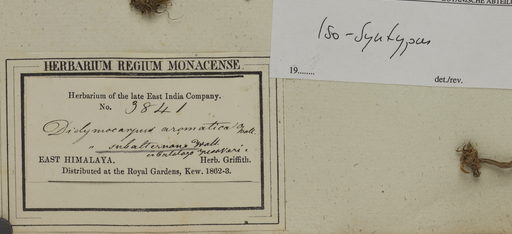 BOTANISCHE ABTEIL
Iso-Syntypus
19........
det./rev.
HERBARIUM REGIUM MONACENSE.
Herbarium of the late East India Company.
No. 3841
Didymocarpus aromatica Wall.
" subalternans Wall.
EAST HIMALAYA. Herb. Griffith.
Distributed at the Royal Gardens, Kew. 1862-3.